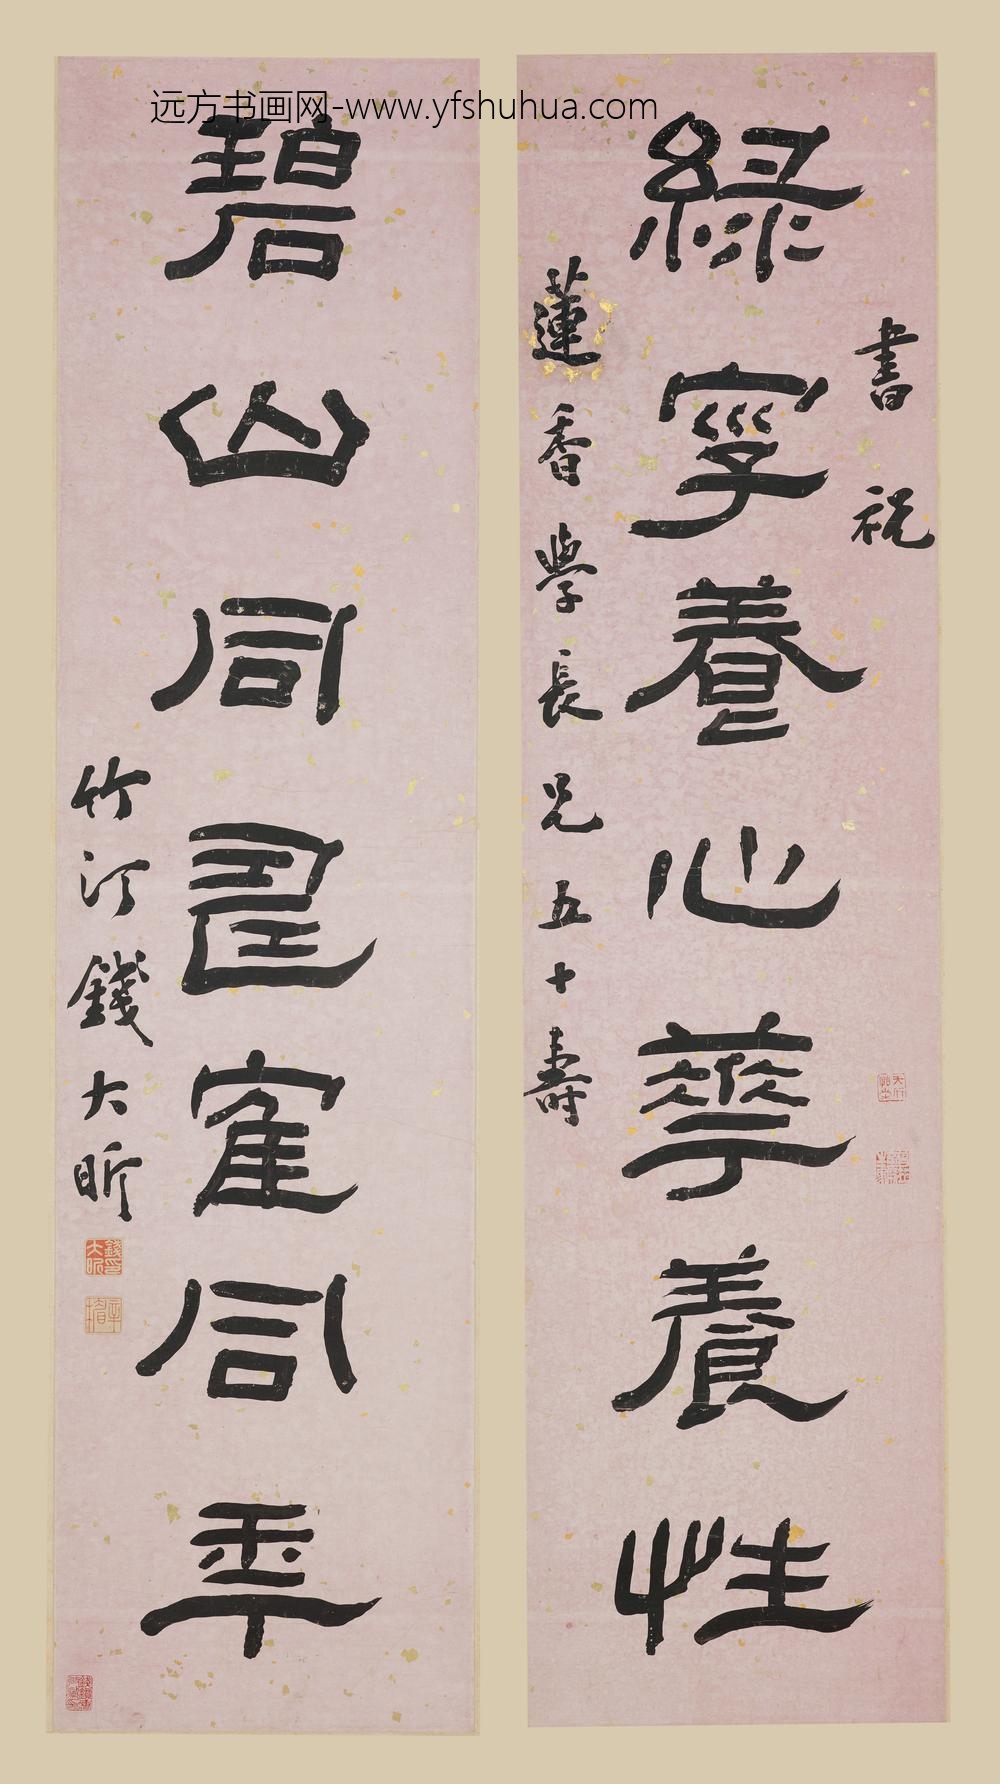 远方书画网-www.yfshuhua.com
書祝
綠養心華養性
蓮香學長兄五十壽
碧山同寉同年
竹汀錢大昕
錢印大昕
辛楣